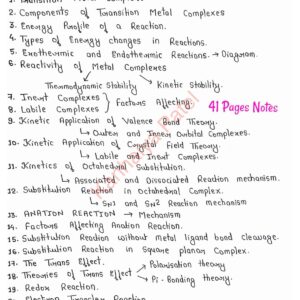 2. Components of Transition Metal Complexes
3. Energy Profile of a Reaction.
4. Types of Energy changes in Reactions.
5. Exothermic and Endothermic Reactions. → Diagram.
6. Reactivity of Metal Complexes
Thermodynamic Stability Kinetic Stability.
7. Inert Complexes
8. Labile Complexes } Factors Affecting.
41 Pages Notes
9. Kinetic Application of Valence Bond Theory.
↳ Outer and Inner Orbital Complexes.
10. Kinetic Application of Crystal Field Theory.
↳ Labile and Inert Complexes.
11. Kinetics of Octahedral Substitution.
↳ Associated and Dissociated Reaction mechanism.
12. Substitution Reaction in Octahedral Complex.
↳ SN1 and SN2 Reaction mechanism
13. ANATION REACTION → Mechanism
14. Factors Affecting Anation Reaction.
15. Substitution Reaction without metal ligand bond cleavage.
16. Substitution Reaction in Square planar Complex.
17. The Trans Effect.
18. Theories of Trans Effect → Polarisation theory
→ Pi-Bonding theory.
19. Redox Reaction.